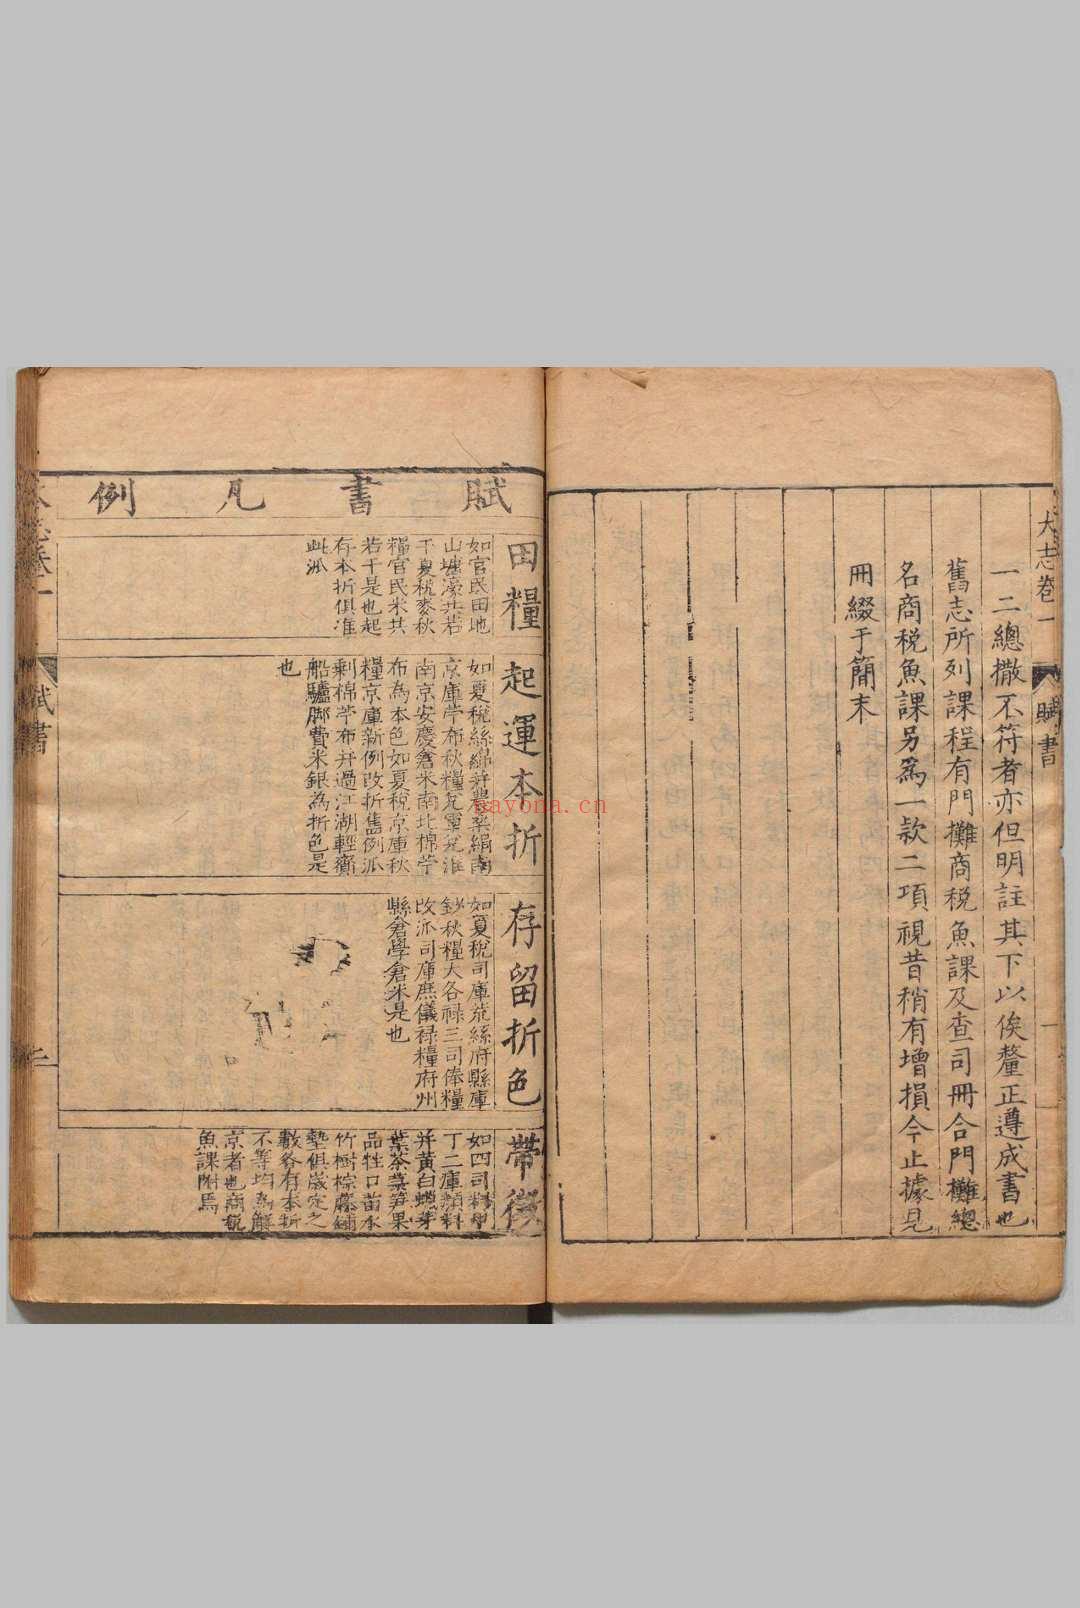 大志卷一
賦書
一二總撒不符者亦但明註其下以俟釐正遵成書也
舊志所列課程有門攤商税魚課及查司冊合門攤總
名商税魚課另爲一款二項視昔稍有增損今止據見
冊綴于簡末
賦書凡例
田糧
如官民田地
山塘濠共若
干夏税麥秋
糧官民米共
若干是也起
存本折俱准
此派
起運本折
如夏税絲綿并農桑絹南
京庫苧布秋糧兌軍兌淮
南京安慶倉米南北棉苧
布為本色如夏税京庫秋
糧京庫新例改折舊例派
剩棉苧布并過江湖輕齎
船驢脚費米銀為折色是
也
存留折色
如夏税司庫荒絲府縣庫
鈔秋糧大各禄三司俸糧
改派司庫庶儀禄糧府州
縣倉學倉米是也
帶徵
如四司料甲
丁二庫顏料
并黃白蠟芽
葉茶菉笋果
品牲口苗木
竹樹棕藤鋪
墊俱歲定之
數各有本折
不等均為解
京者也商税
魚課附焉
賦書
二
bavona.cn